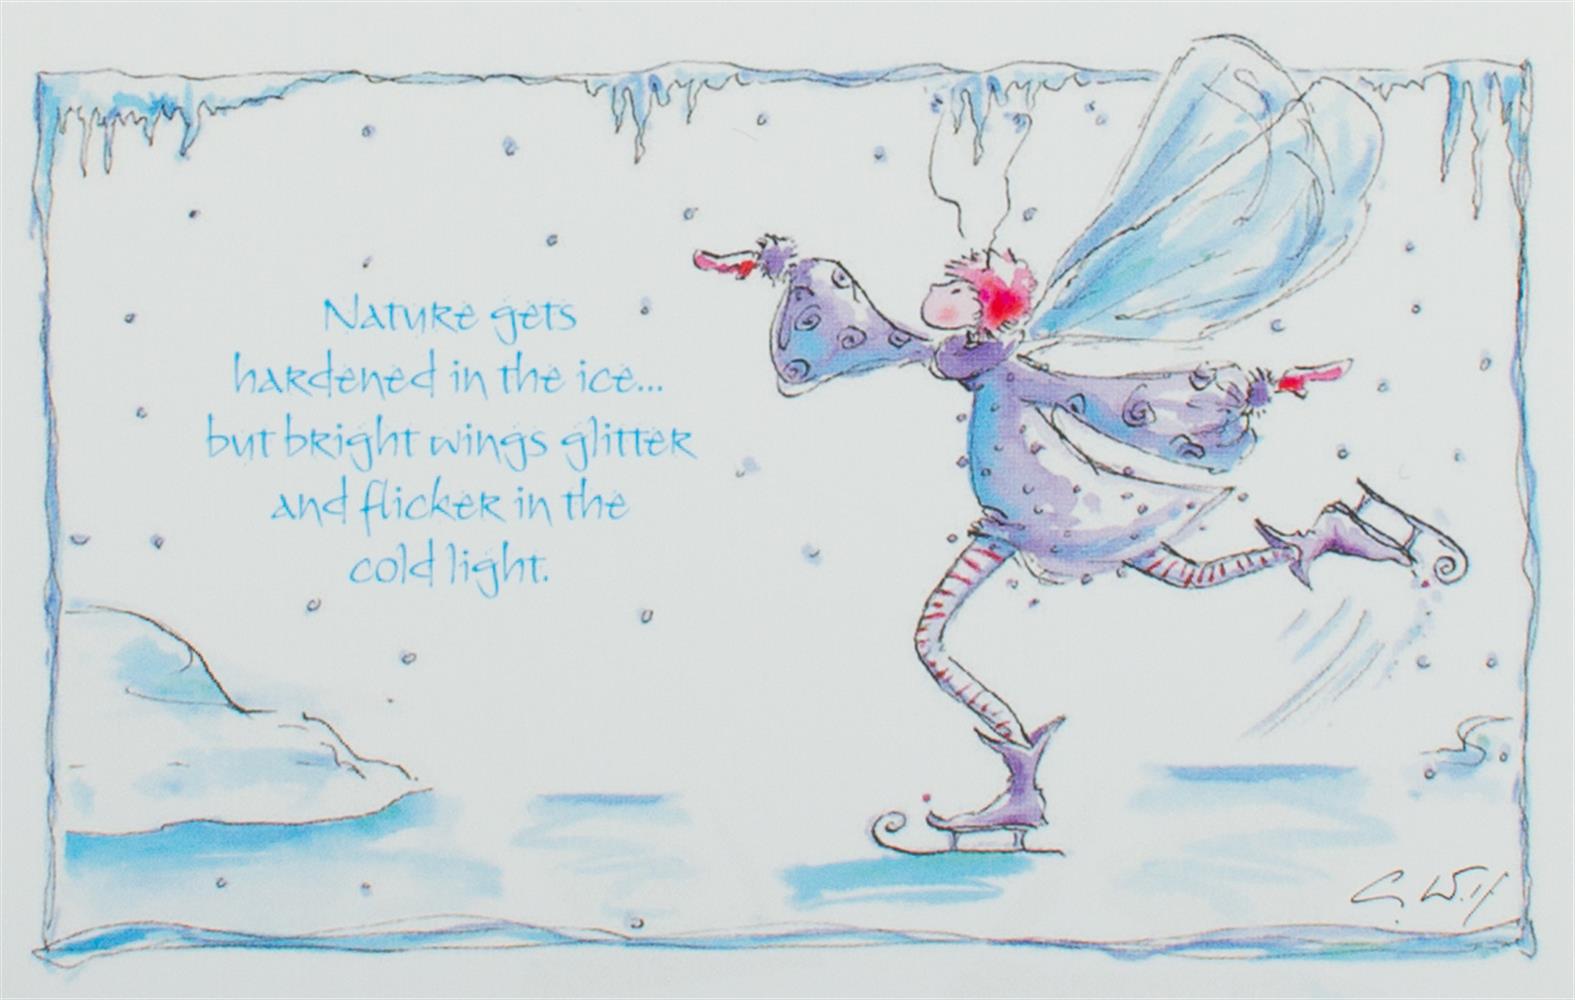 Nature gets
hardened in the ice...
but bright wings glitter
and flicker in the
cold light.